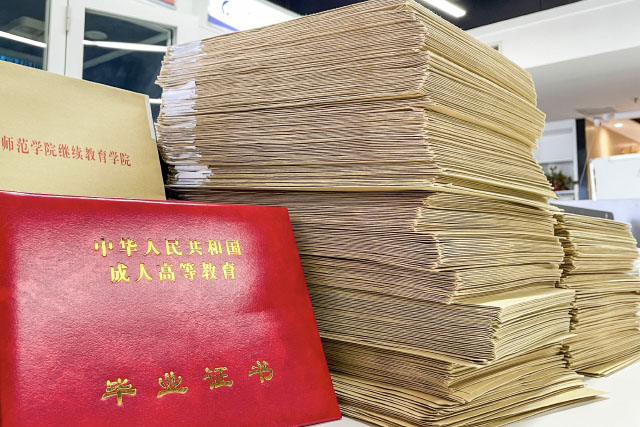 师范学院继续教育学院
中华人民共和国
成人高等教育
毕业证书